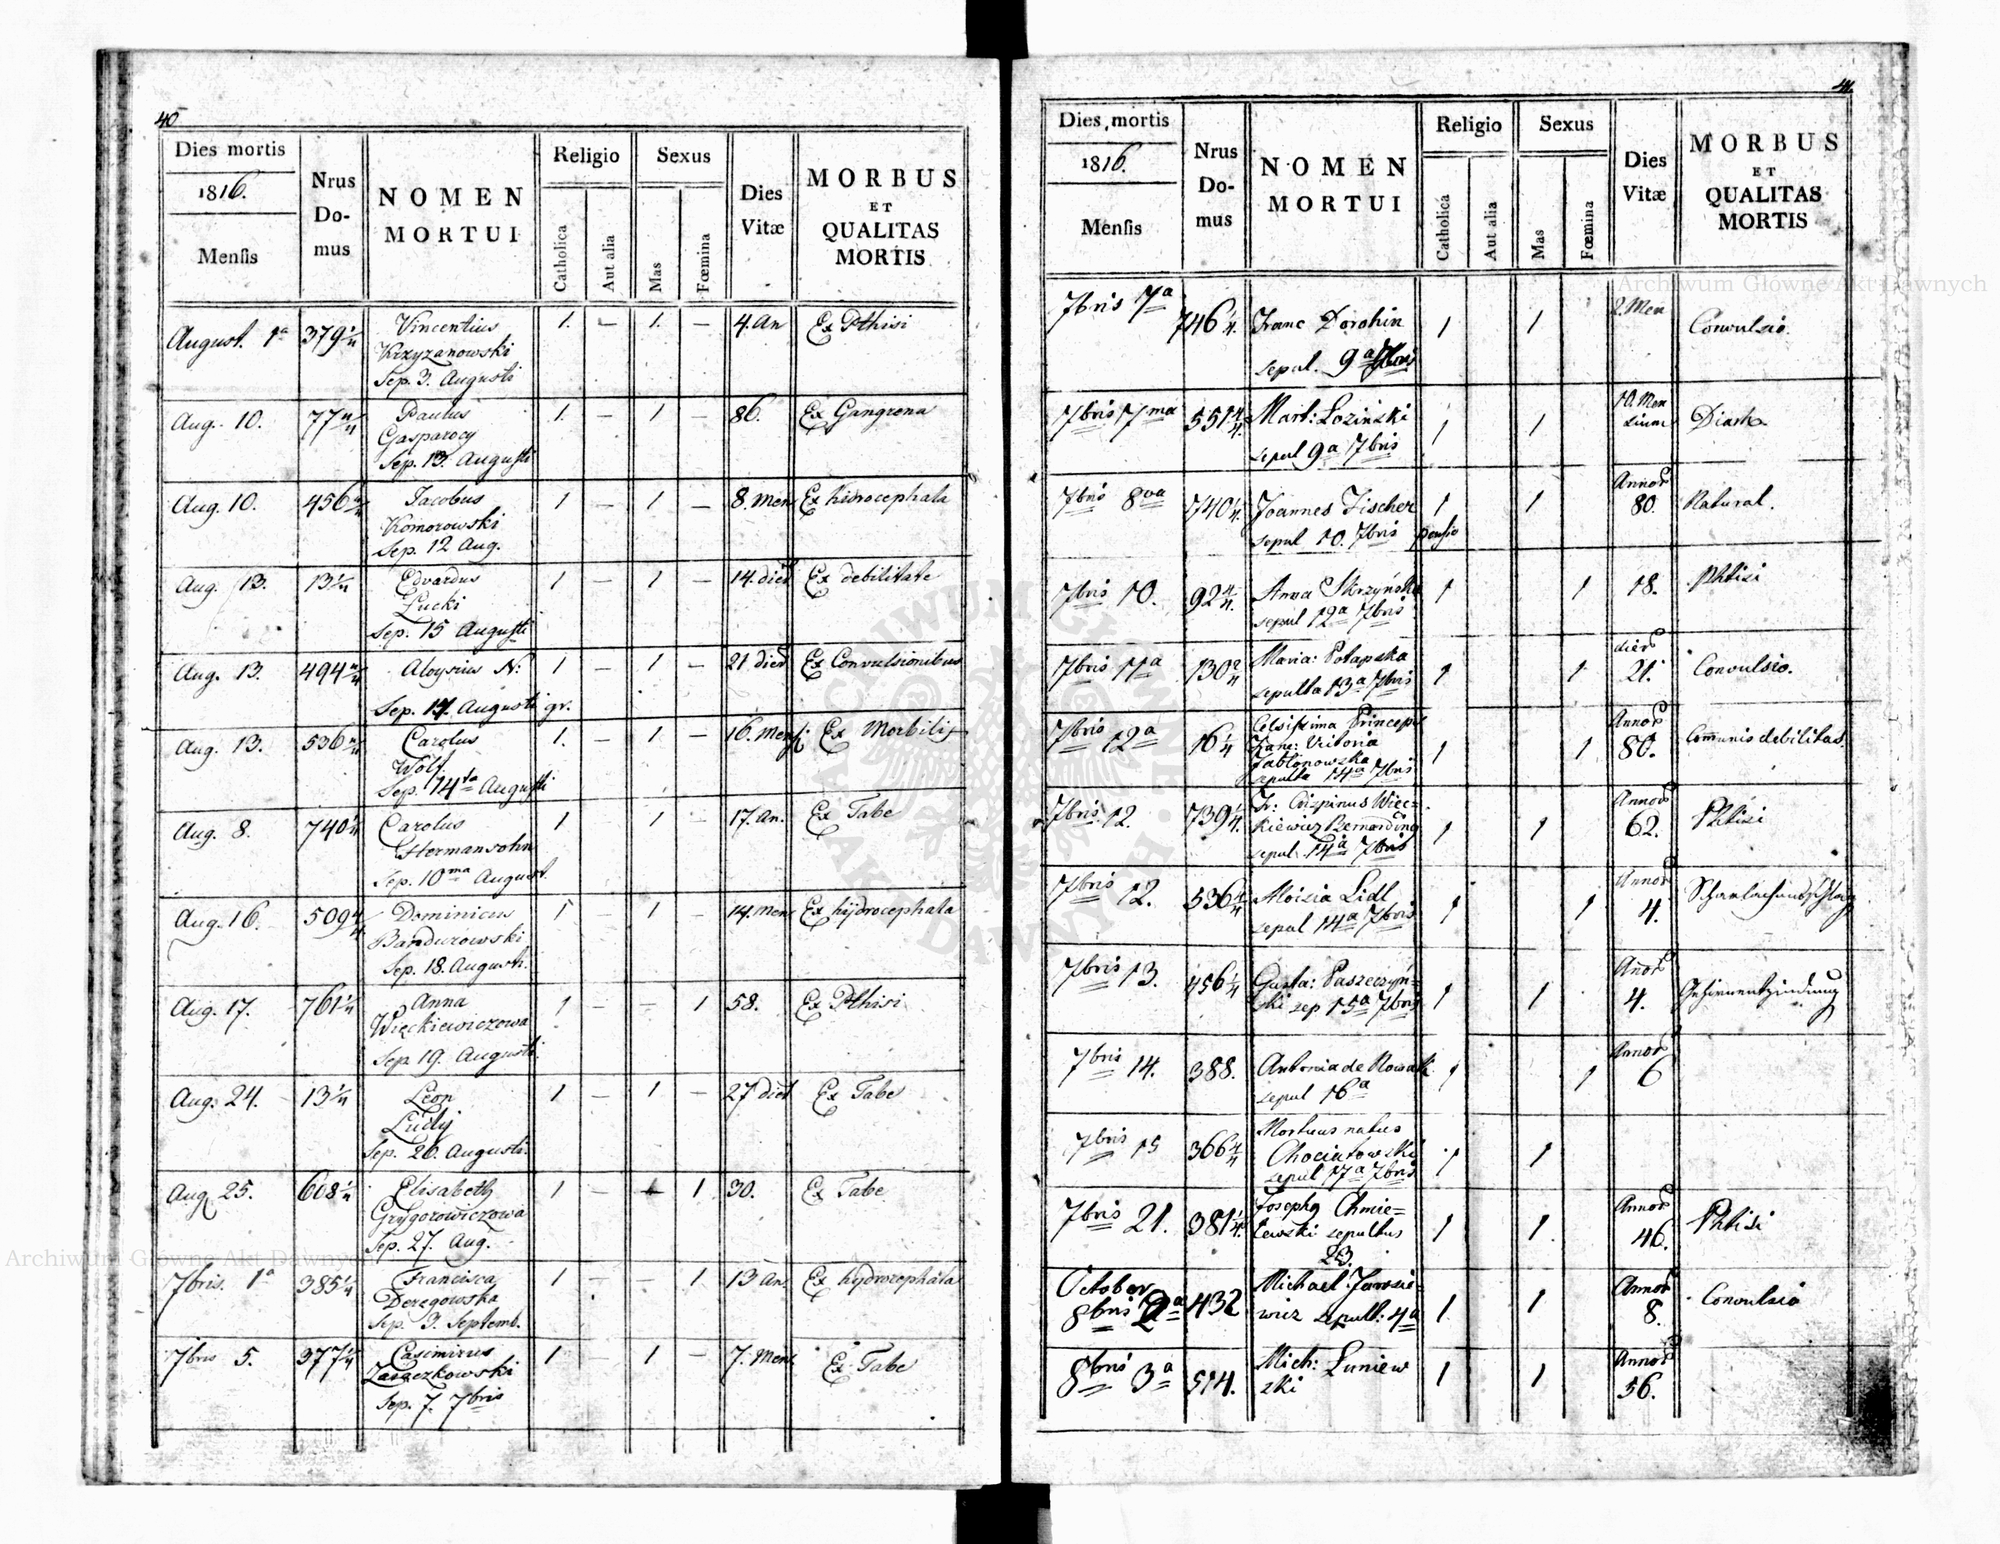 40
Dies mortis
1816.
Mensis
Nrus
Do-
mus
NOMEN
MORTUI
Religio
Catholica
Aut alia
Sexus
Mas
Fœmina
Dies
Vitæ
MORBUS
ET
QUALITAS
MORTIS
August. 1a 379 Vincentius 1. – 1. – 4. An Ex Pthisi
Krzyzanowski
Sep. 3. Augusti
Aug. 10. 77 Paulus 1. – 1 – 86. Ex Gangrena
Gasparocy
Sep. 13. Augusti
Aug. 10. 456 Jacobus 1 – 1 – 8 Men Ex hidrocephala
Komorowski
Sep. 12 Aug.
Aug. 13. 13 Edvardus 1 – 1 – 14. died Ex debilitate
Lucki
Sep. 15 Augusti
Aug. 13. 494 Aloysius N: 1 – 1 – 21 died Ex Convulsionibus
Sep. 14. Augusti gr.
Aug. 13. 536 Carolus 1. – 1 – 16. Mens Ex Morbilis
Wolf
Sep. 14ta Augusti
Aug. 8. 740 Carolus 1 1 – 17. An. Ex Tabe
Hermansohn
Sep. 10ma August.
Aug. 16. 509 Dominicus 1 – 1 – 14. Mens Ex hydrocephala
Bandurowski
Sep. 18. Augusti.
Aug. 17. 761 Anna 1 – – 1 58. Ex Pthisi
Więckiewiczowa
Sep. 19. Augusti
Aug. 24. 13 Leon 1 – 1 – 27 died Ex Tabe
Ludy
Sep. 26. Augusti.
Aug 25. 608 Elisabeth 1 – 1 30. Ex Tabe
Grygorowiczowa
Sep. 27. Aug.
7bris. 1a 385 Francisca 1 – – 1 13 An. Ex hydrocephala
Deregowska
Sep. 3. Septemb.
7bris 5. 377 Casimirus 1 – 1 – 7. Mens Ex Tabe
Zaręczkowski
Sep. 7. 7bris
41
Dies mortis
1816.
Mensis
Nrus
Do-
mus
NOMEN
MORTUI
Religio
Catholica
Aut alia
Sexus
Mas
Fœmina
Dies
Vitæ
MORBUS
ET
QUALITAS
MORTIS
7bris 7a 746 Franc Dorohin 1 1 2. Men Convulsio.
sepul. 9a 7bris
7bris 7ma 551 Mart: Łoziński 1 1 10. Men
sium
sepul 9a 7bris
7bris 8va 740 Joannes Fischer 1 1 Annor 80. Natural.
sepul 10. 7bris
7bris 10. 92 Anna Skrzyńska 1 1 18. Phtisi
sepul 12a 7bris
7bris 11a 130 Maria: Potapska 1 1 dier 21. Convulsio.
sepulta 13a 7bris
7bris 12a 16 Celsissima Princeps 1 1 Annor 80. Communis debilitas.
Franc: Victoria
Jabłonowska
sepulta 14a 7bris
7bris 12. 739 Fr: Crispinus Wiec= 1 1 Annor 62. Phtisi
kiewicz Bernardino
sepul. 14a 7bris
7bris 12. 536 Aloisia Lidl 1 1 Annor 4.
sepul 14a 7bris
7bris 13. 456 Gusta: Paszczyń= 1 1 Annor 4. Gehirnentzündung
ski sep 15a 7bris
7bris 14. 388. Antonia de Nowak 1 1 Annor 6
sepul 16a
7bris 15 366 Mortuus natus 1 1
Chociatowski
sepul 17a 7bris
7bris 21. 381 Joseph Chmie= 1 1 Annor 46. Phtisi
lewski sepultus
23.
October
8bris 2a 432 Michael Jarosie= 1 1 Annor 8. Convulsio
wicz sepult: 4a
8bris 3a 514. Mich: Łuniew 1 1 Annor 56.
ski
Archiwum Główne Akt Dawnych
Archiwum Główne Akt Dawnych
ARCHIWUM GŁÓWNE AKT DAWNYCH